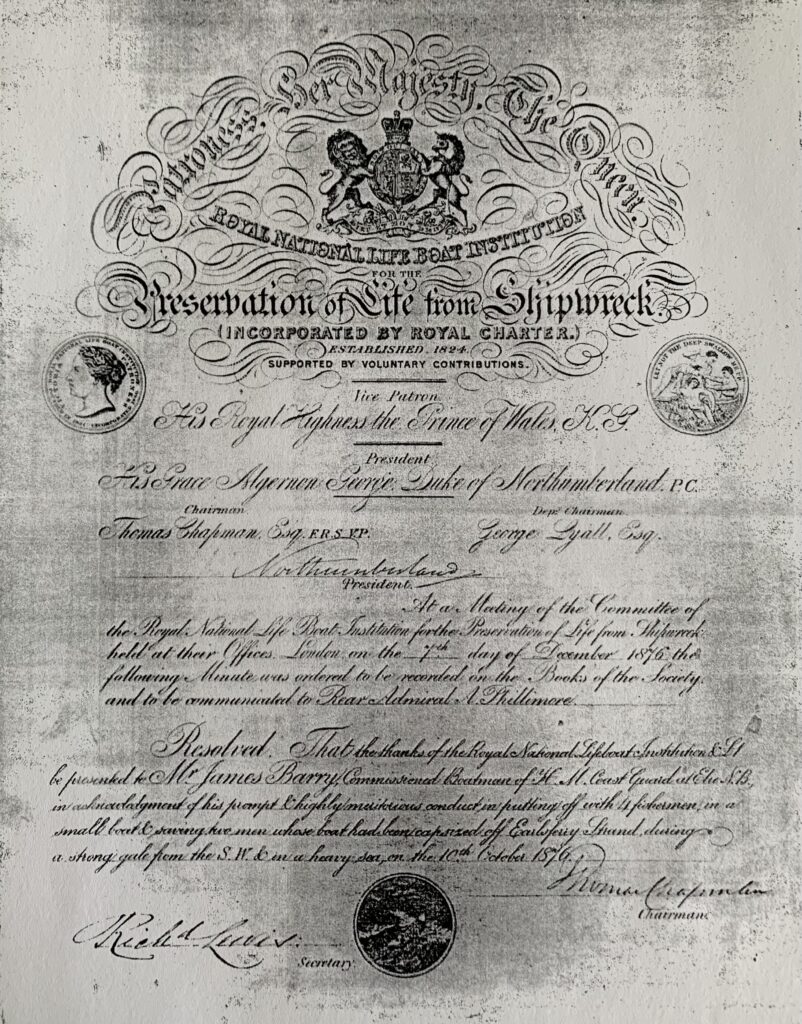 Patroness, Her Majesty, The Queen.
ROYAL NATIONAL LIFE BOAT INSTITUTION
FOR THE
Preservation of Life from Shipwreck.
(INCORPORATED BY ROYAL CHARTER.)
ESTABLISHED, 1824.
SUPPORTED BY VOLUNTARY CONTRIBUTIONS.
LET NOT THE DEEP SWALLOW ME UP
Vice Patron.
His Royal Highness the Prince of Wales, K.G.
President
His Grace Algernon George, Duke of Northumberland, P.C.
Chairman Depy Chairman
Thomas Chapman, Esq. F.R.S. V.P. George Lyall, Esq.
Northumberland
President.
At a Meeting of the Committee of
the Royal National Life Boat Institution for the Preservation of Life from Shipwreck
held at their Offices, London on the 7th day of December 1876 the
following Minute was ordered to be recorded on the Books of the Society
and to be communicated to Rear Admiral A. Phillimore.
Resolved. That the thanks of the Royal National Lifeboat Institution & £1
be presented to Mr James Barry, Commissioned Boatman of H. M. Coast Guard at Elie N.B.,
in acknowledgment of his prompt & highly meritorious conduct in putting off with 4 fishermen, in a
small boat & saving two men whose boat had been capsized off Earlsferry Strand, during
a strong gale from the S.W. & in a heavy sea, on the 10th October 1876.
Thomas Chapman
Chairman.
Richd Lewis.
Secretary.